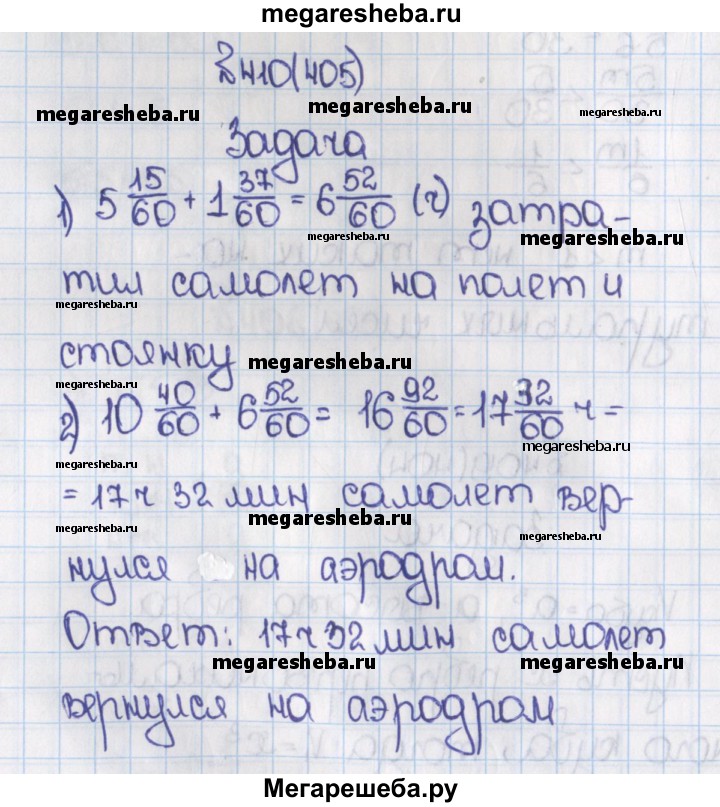 megaresheba.ru
№410(405)
megaresheba.ru megaresheba.ru
Задача
1) 5 15/60 + 1 37/60 = 6 52/60 (ч) затра-
megaresheba.ru megaresheba.ru
тил самолет на полет и
megaresheba.ru
стоянку megaresheba.ru
2) 10 40/60 + 6 52/60 = 16 92/60 = 17 32/60 ч =
megaresheba.ru
= 17ч 32 мин самолет вер-
megaresheba.ru megaresheba.ru megaresheba.ru
нулся на аэродром.
Ответ: 17ч 32 мин самолет
megaresheba.ru megaresheba.ru
вернулся на аэродром
Мегарешеба.ру